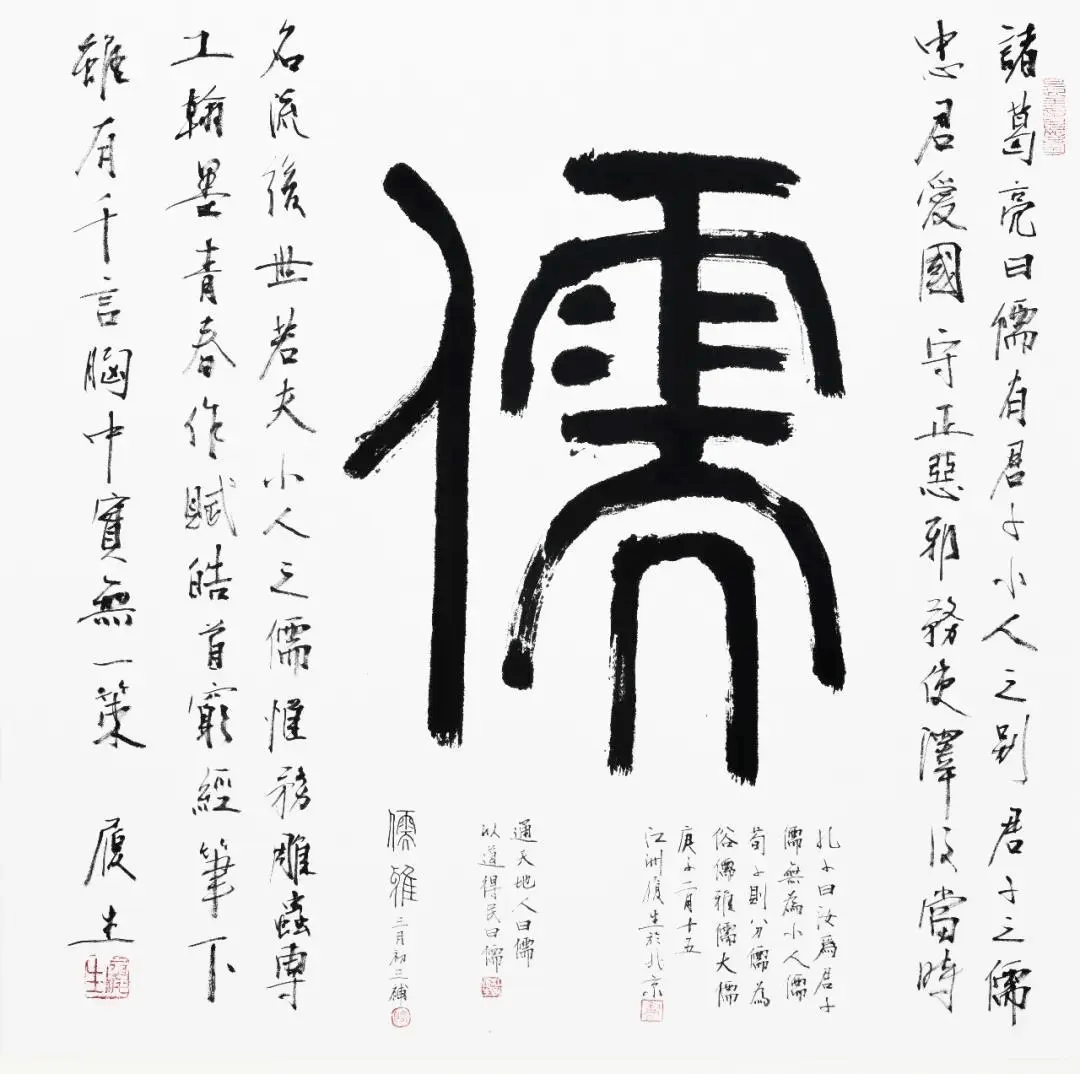 諸葛亮曰儒有君子小人之別君子之儒
忠君愛國守正惡邪務使澤及當時
儒
孔子曰汝爲君子
儒無為小人儒
荀子則分儒為
俗儒雅儒大儒
庚子二月十五
江洲履生於北京
通天地人曰儒
以道得民曰儒
儒雅 三月初三補
名流後世若夫小人之儒惟務雕蟲專
工翰墨青春作賦皓首窮經筆下
雖有千言胸中實無一策 履生